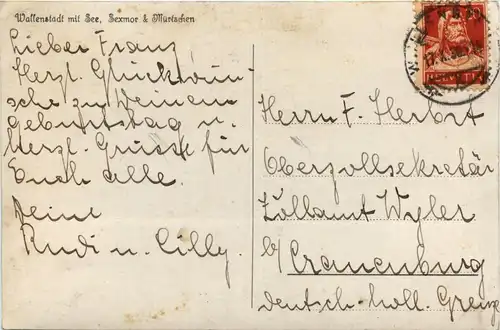 Wallenstadt mit See, Sexmor & Mürtschen
Lieber Franz
Herzl. Glückwün-
sche zu Deinem
Geburtstag u.
herzl. Grüsse für
Euch alle.
Deine
Rudi u. Cilly.
HELVETIA
Herrn F. Herbst
Oberzollsekretär
Zollamt Wyler
b/ Cranenburg
deutsch-holl. Grenze